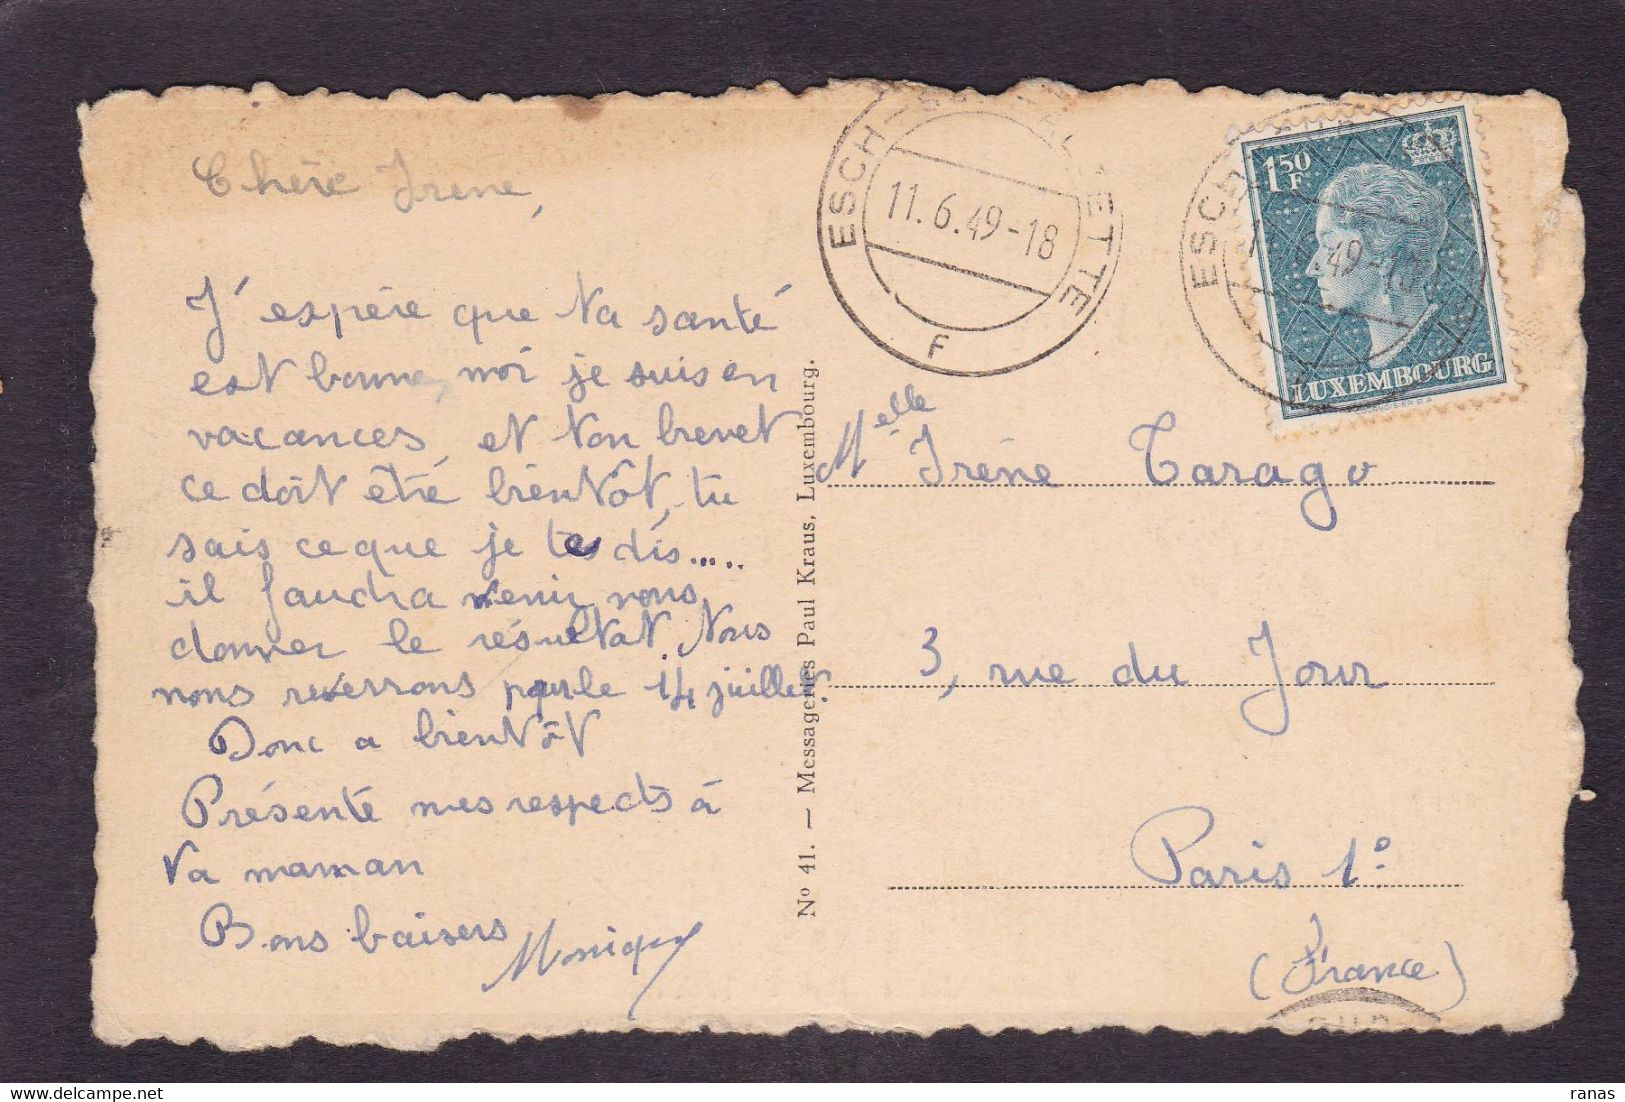 Chère Irène,
J'espère que ta santé
est bonne, moi je suis en
vacances, et ton brevet
ce doit être bientôt, tu
sais ce que je te dis.....
il faudra venir nous
donner le résultat. Nous
nous reverrons pour le 14 juillet.
Donc a bientôt
Présente mes respects à
ta maman
Bons baisers Monique
No 41. — Messageries Paul Kraus, Luxembourg.
ESCH-SUR-ALZETTE
11.6.49-18
F
1F50
LUXEMBOURG
Melle Irène Tarago
3, rue du Jour
Paris 1º
(France)
delcampe.net
ranas